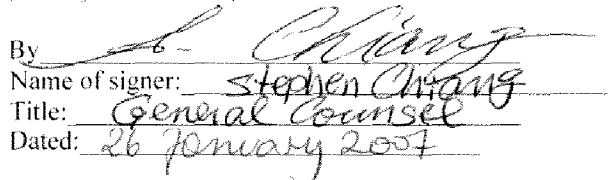 By S. Chiang
Name of signer: Stephen Chiang
Title: General Counsel
Dated: 26 January 2007